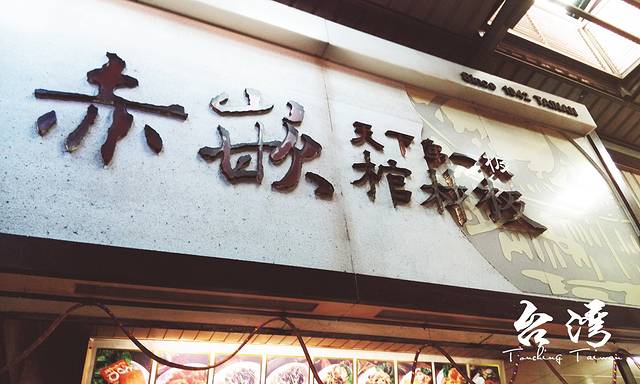 Since 1942 TAINAN
赤嵌
天下第一
棺材板
台灣
Touching Taiwan